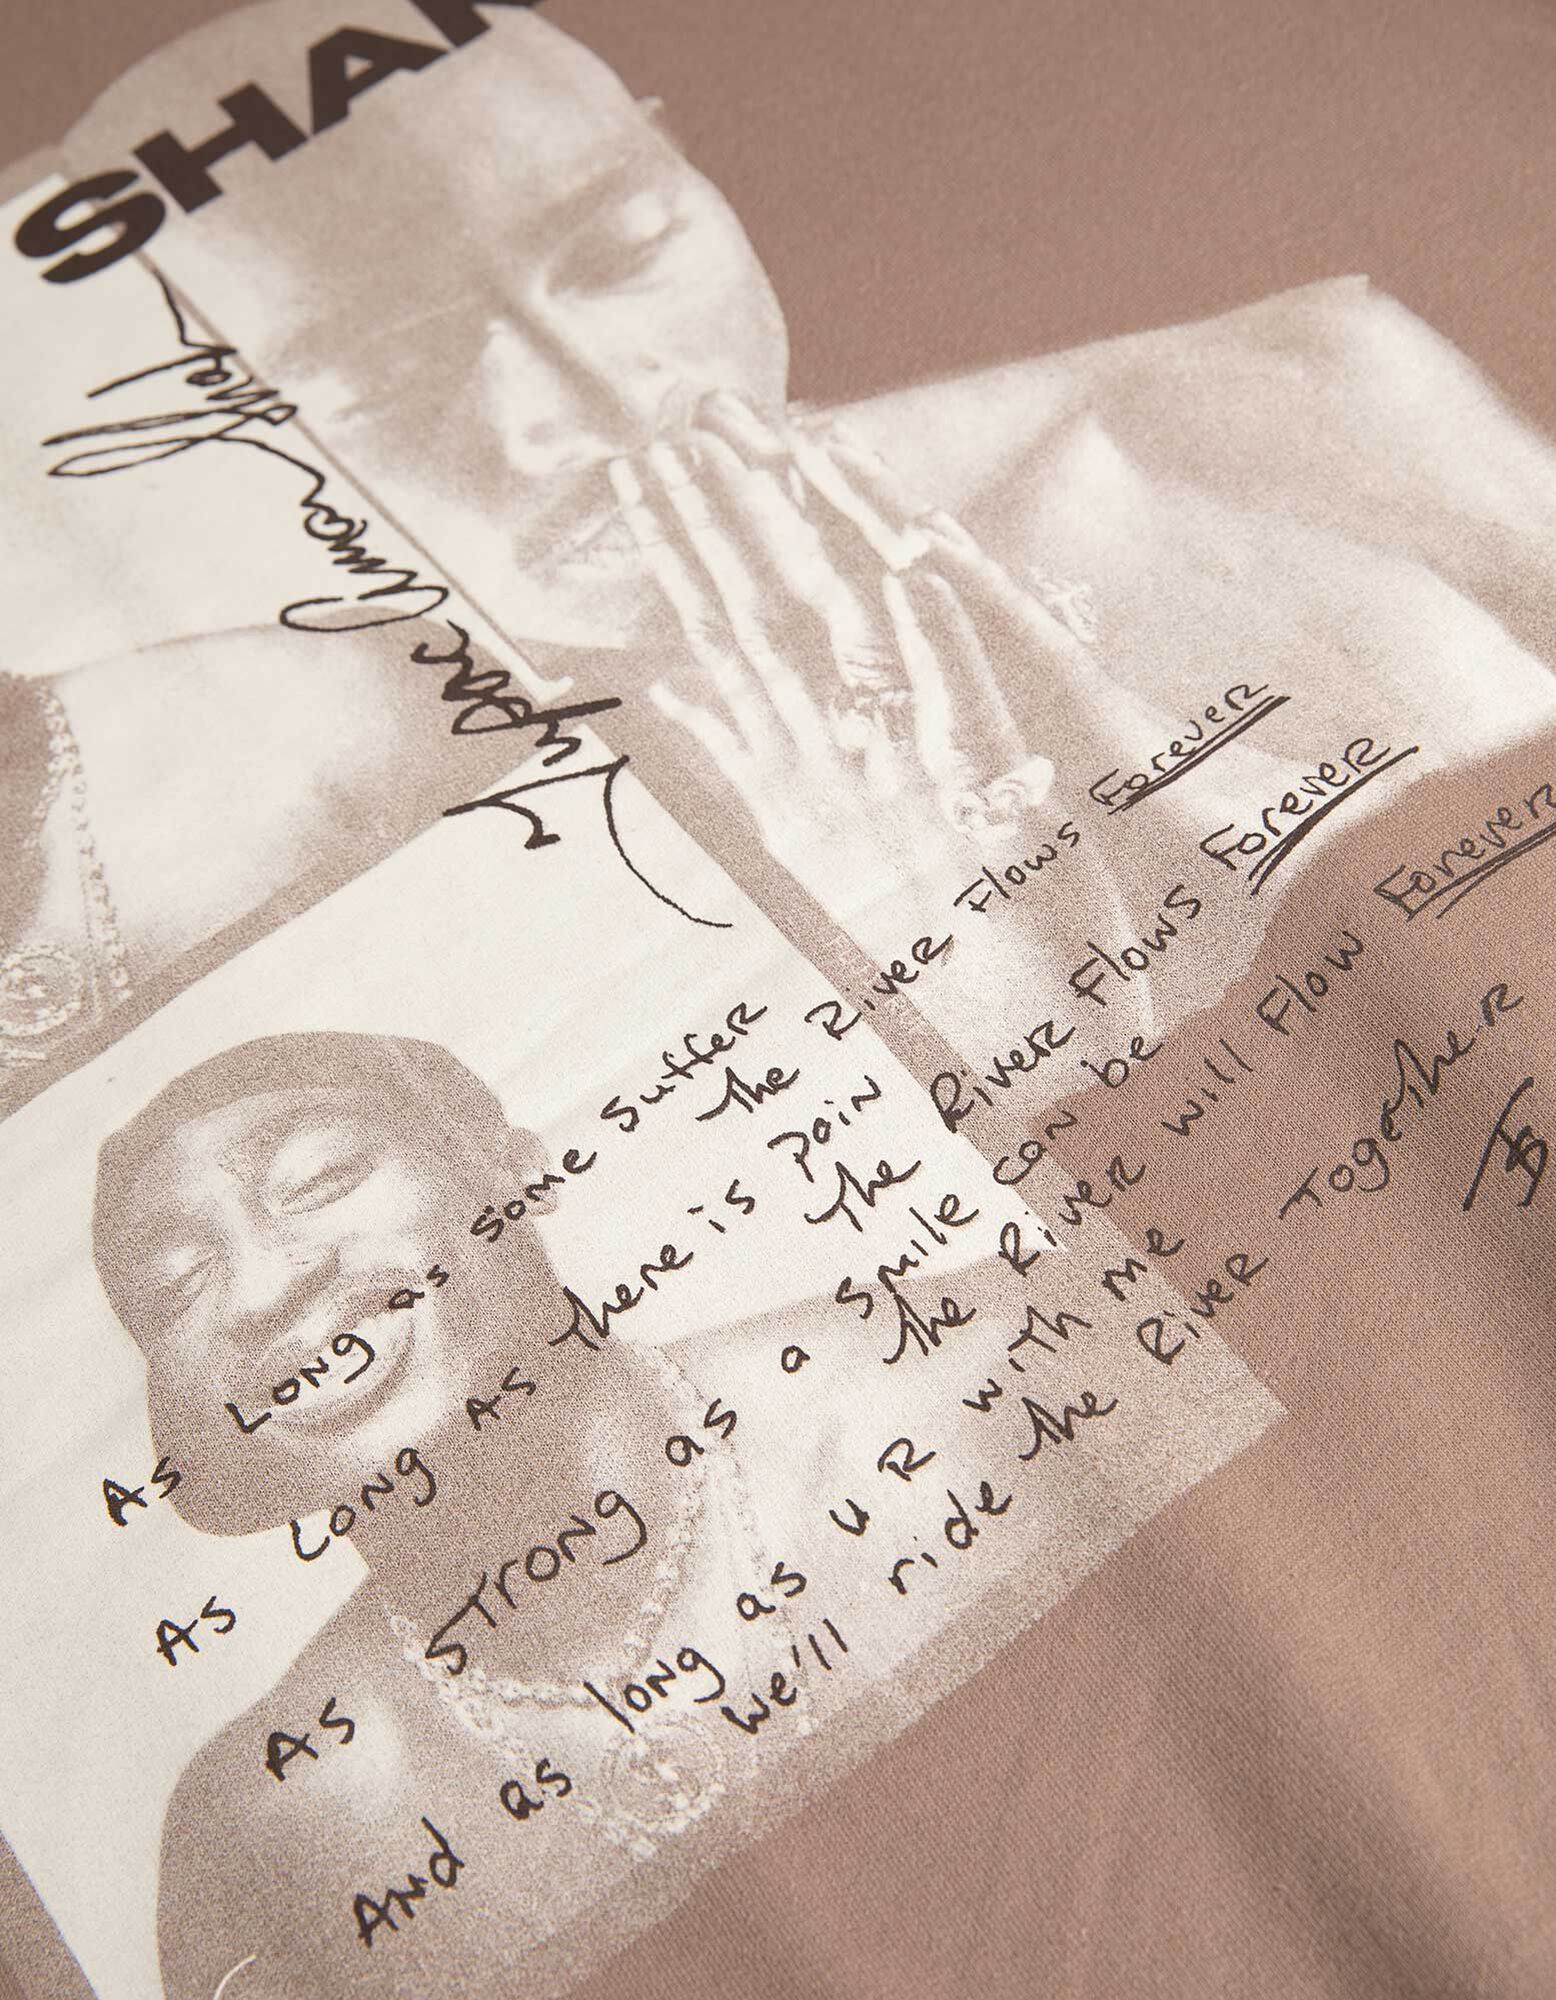 SHAK
Tupac Amaru Shakur
As Long as some suffer
the River Flows Forever
As Long As there is pain
the River Flows Forever
As strong as a smile can be
the River will Flow Forever
And as long as u R with me
we'll ride the River Together